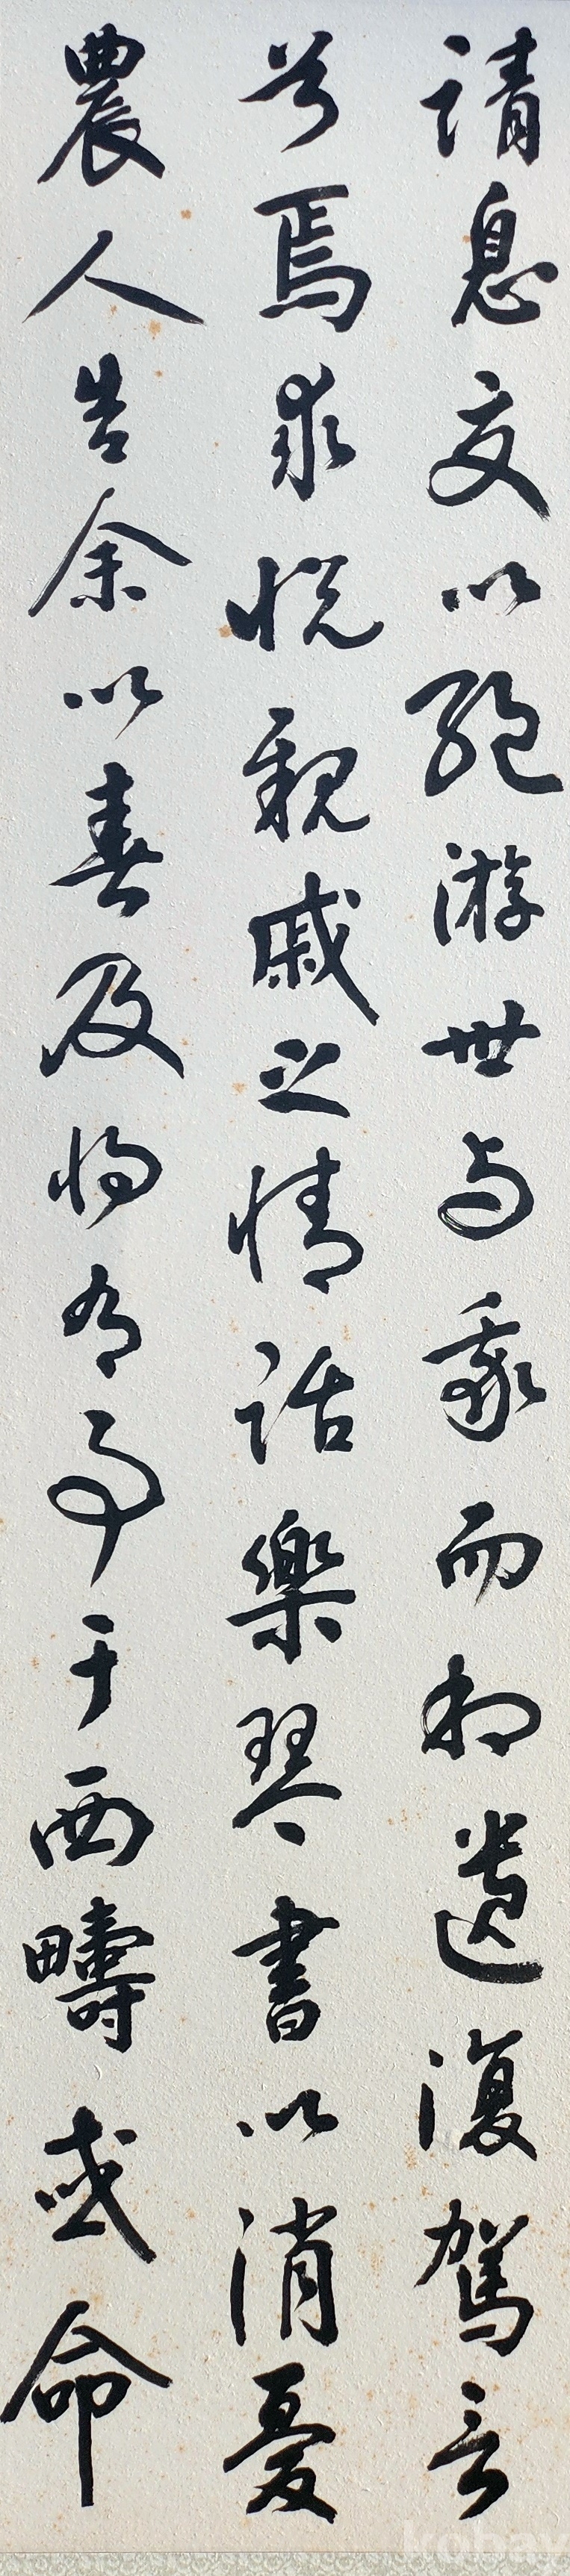 請息交以絕游世与我而相遺復駕言
兮焉求悅親戚之情話樂琴書以消憂
農人告余以春及將有事于西疇或命